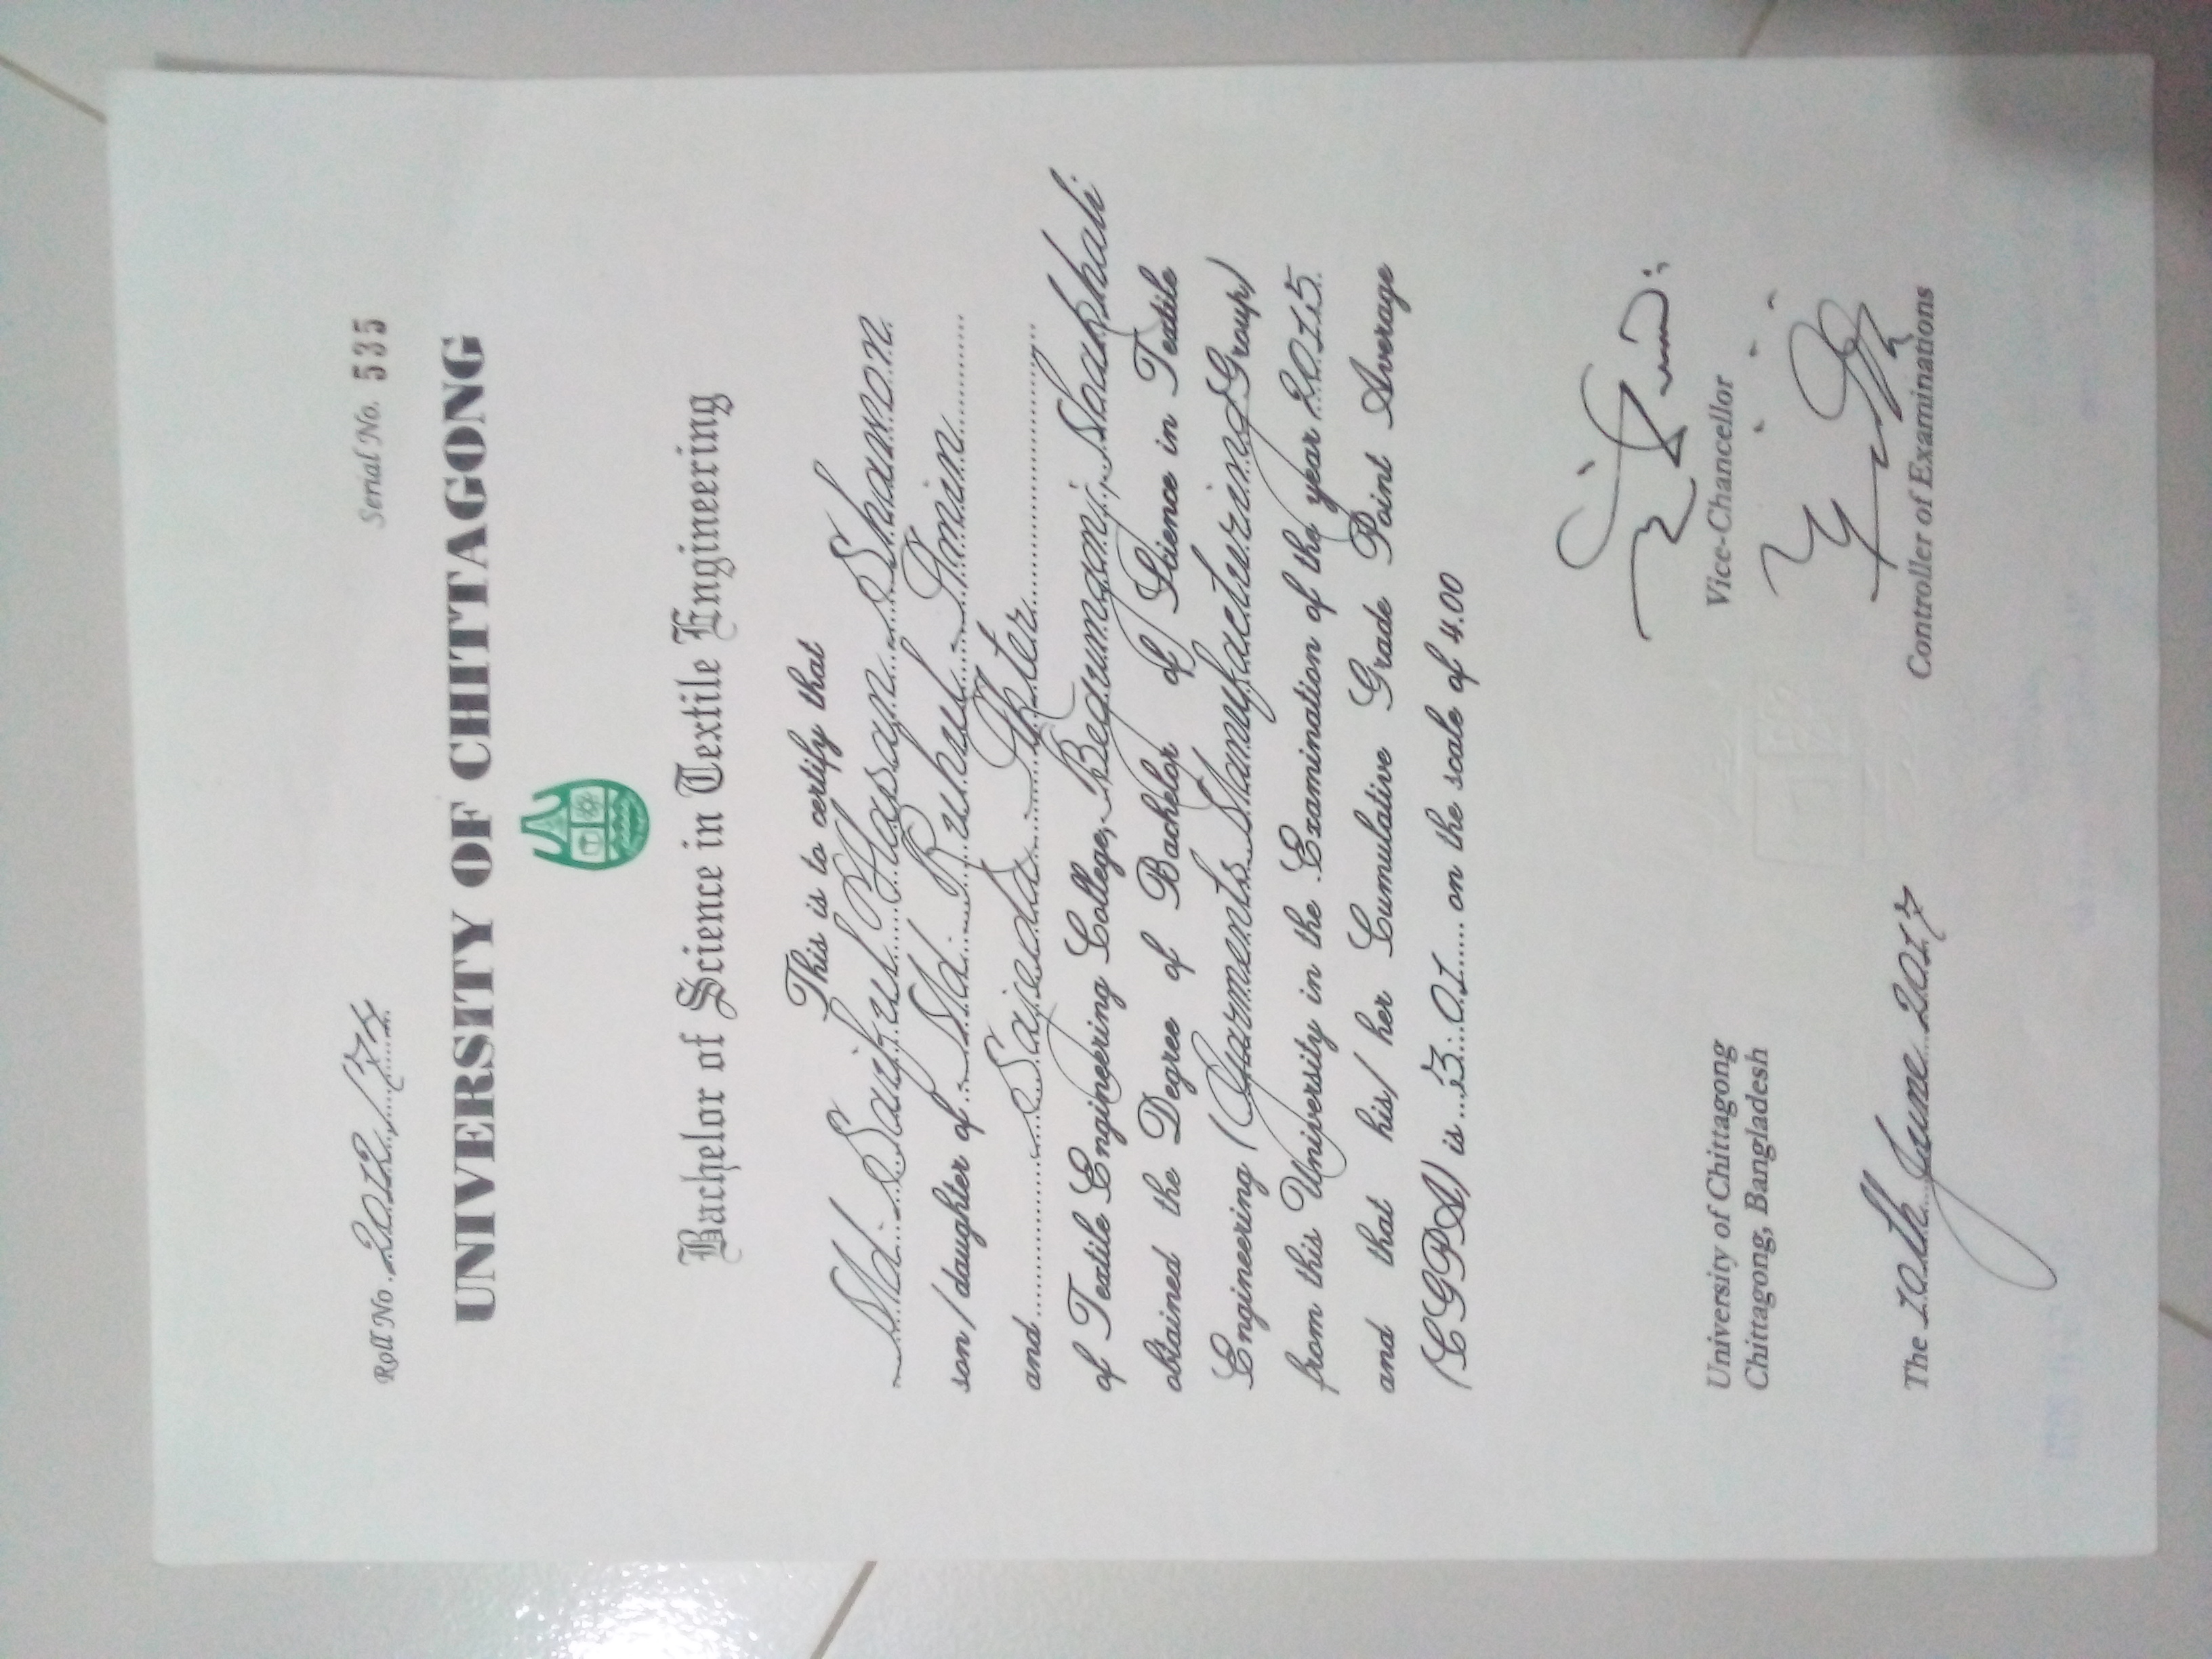 Roll No. 2012/74
Serial No. 535
UNIVERSITY OF CHITTAGONG
Bachelor of Science in Textile Engineering
This is to certify that
Md. Saiful Hasan Shawon
son/daughter of Md. Ruhul Amin
and Sajeda Akter
of Textile Engineering College, Begumganj, Noakhali
obtained the Degree of Bachelor of Science in Textile
Engineering (Garments Manufacturing Group)
from this University in the Examination of the year 2015
and that his/her Cumulative Grade Point Average
(CGPA) is 3.01 on the scale of 4.00
University of Chittagong
Chittagong, Bangladesh
Vice-Chancellor
The 10th June 2017
Controller of Examinations